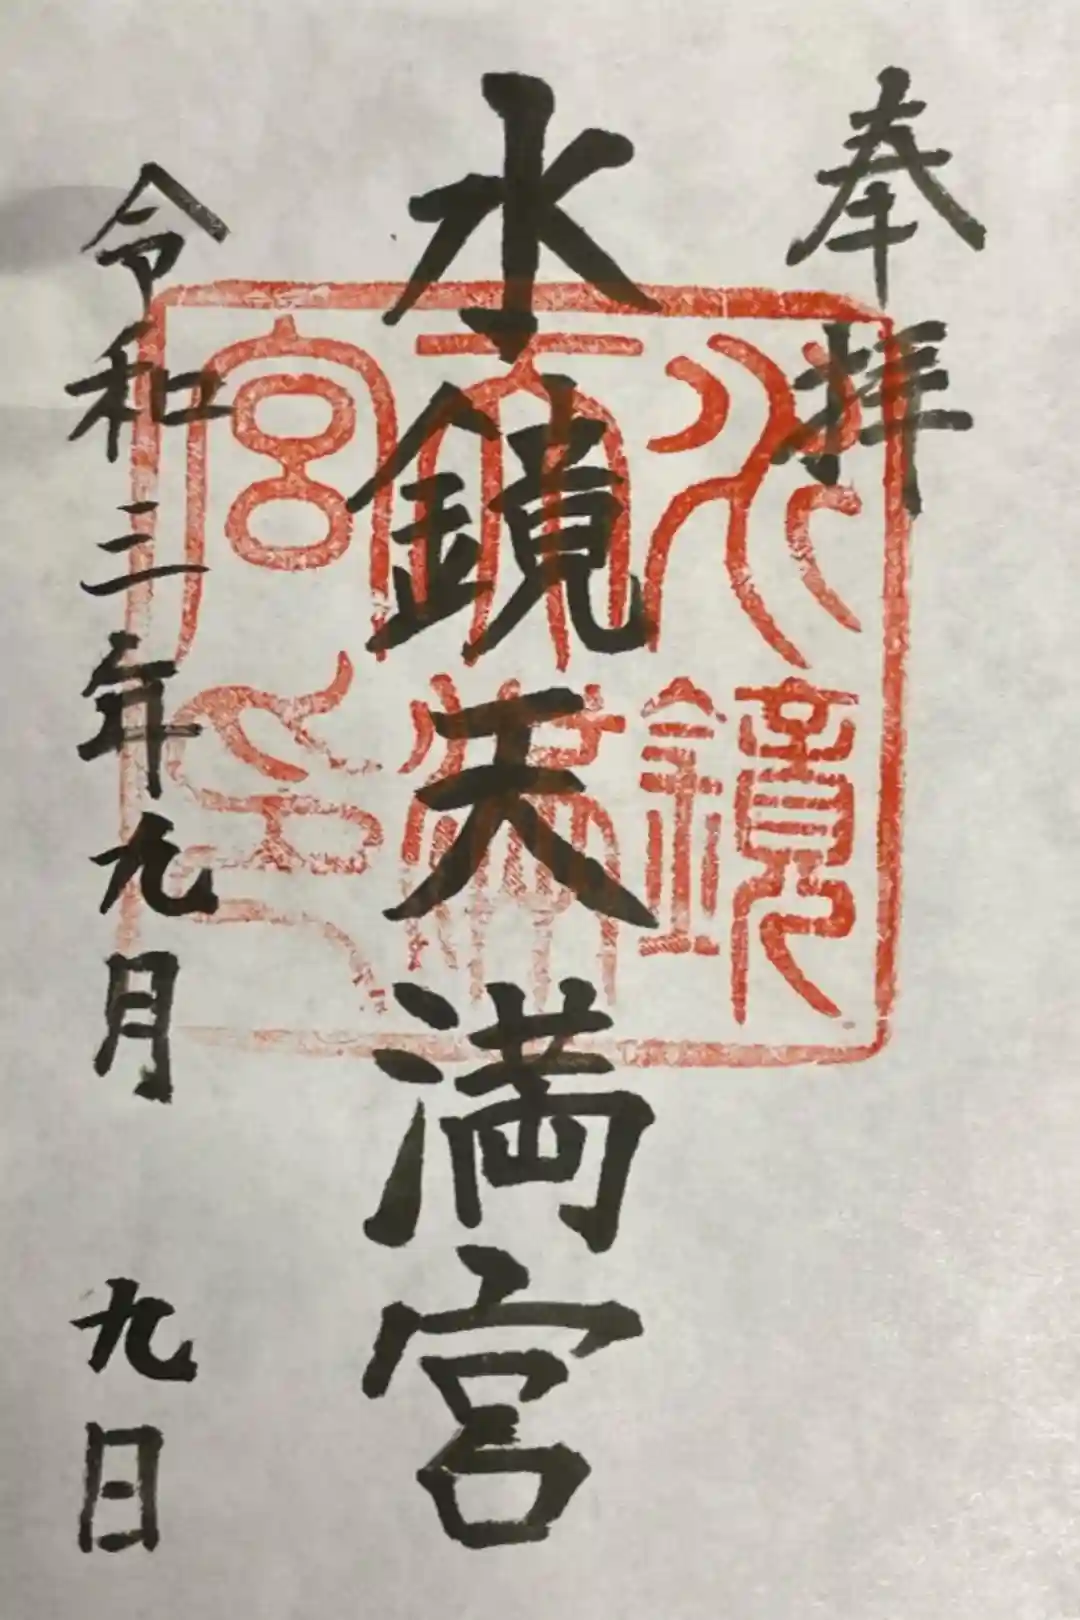 奉拝
水鏡天満宮
水鏡天満宮印
令和三年九月九日